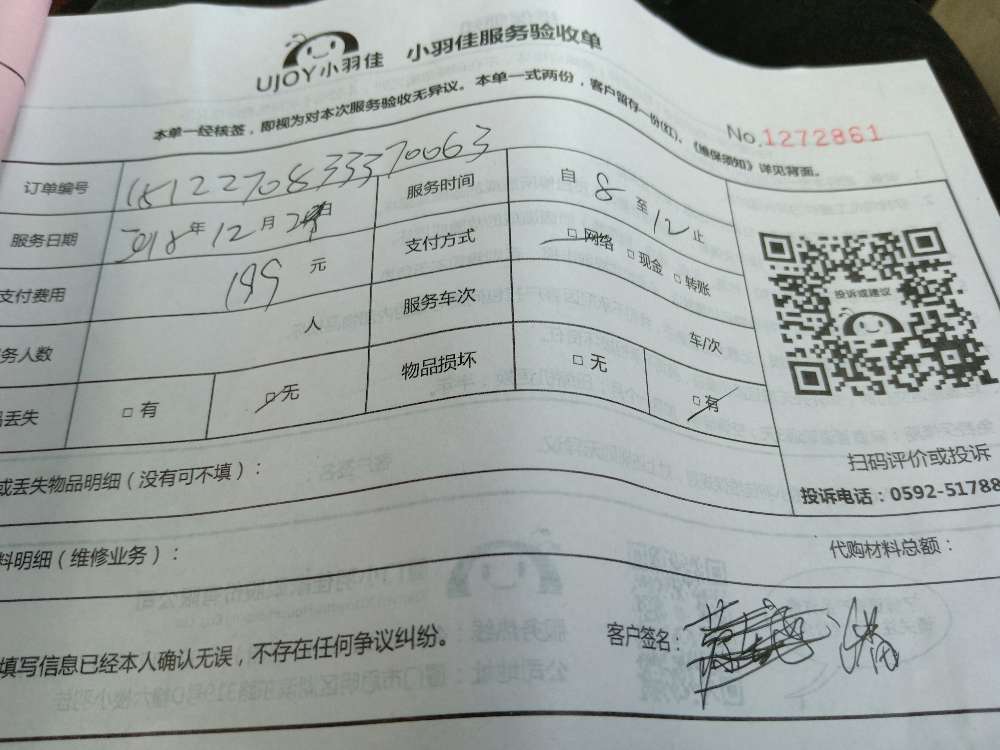 UJOY小羽佳 小羽佳服务验收单
本单一经核签，即视为对本次服务验收无异议。本单一式两份，客户留存一份(红)，《维保须知》详见背面。
No.1272861
订单编号 1812270833370063 服务时间 自 8 至 12 止
服务日期 2018年12月 日 支付方式 □网络 □现金 □转账
支付费用 199 元
务人数 人 服务车次 车/次
丢失 □有 □无 物品损坏 □无 □有
投诉或建议
扫码评价或投诉
投诉电话：0592-51788
或丢失物品明细（没有可不填）：
料明细（维修业务）： 代购材料总额：
填写信息已经本人确认无误，不存在任何争议纠纷。 客户签名：